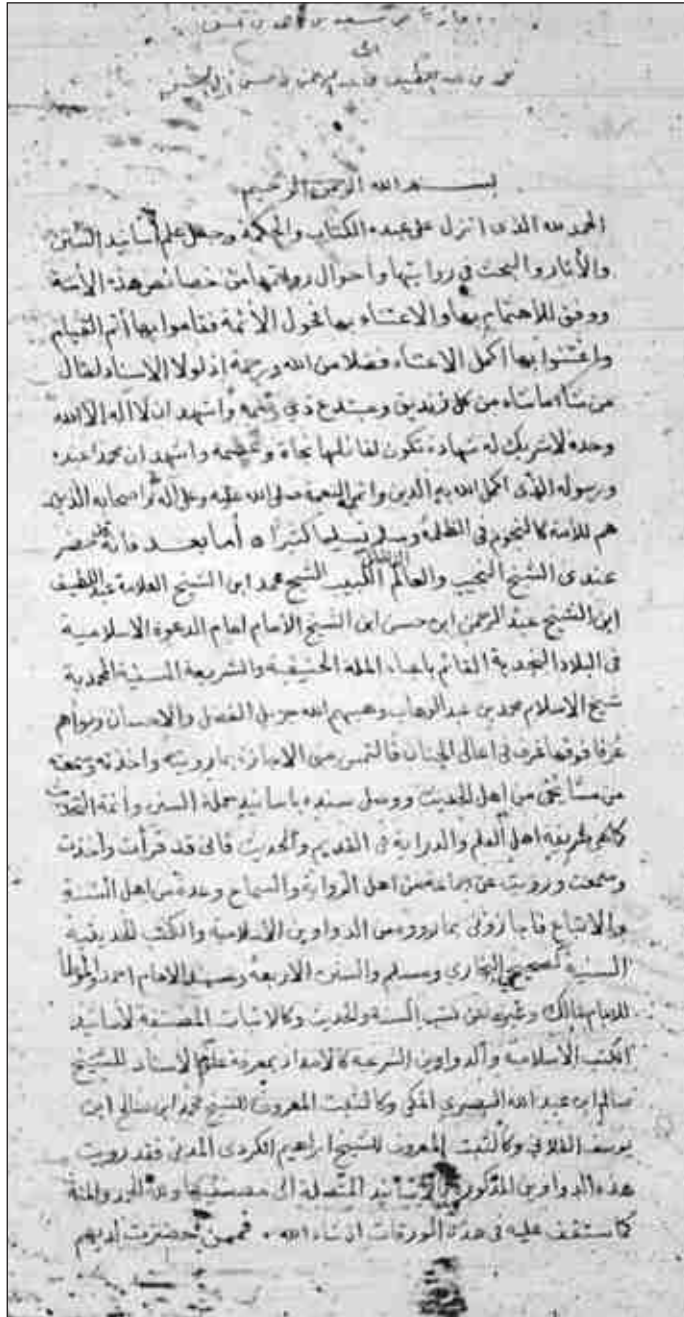 إجازة من سعد بن حمد بن عتيق
الى
محمد بن عبد اللطيف بن عبد الرحمن بن حسن آل الشيخ
بسم الله الرحمن الرحيم
الحمد لله الذى انزل على عبده الكتاب والحكمة وجعل علم أسانيد السنن
والأثار والبحث في روايتها واحوال رواتها من خصائص هذه الأمة
ووفق للأهتمام بها والاعتناء بها فحول الأئمة فقاموا بها أتم القيام
واعتنوا بها اكمل الاعتناء فضلا من الله ورحمة إذ لولا الاسناد لقال
من شاء ما شاء من كل زنديق ومبتدع ذي واشهد ان لا اله الا الله
وحده لا شريك له شهادة تكون لقائلها نجاة وعصمة واشهد ان محمدا عبده
ورسوله الذى اكمل الله به الدين واتم النعمة صلى الله عليه وعلى آله واصحابه الذين
هم للأمة كالنجوم في الظلمة وسلم تسليما كثيرا أما بعد فانه حضر
عندى الشيخ النجيب والعالم الفاضل اللبيب الشيخ محمد ابن الشيخ العلامة عبد اللطيف
ابن الشيخ عبد الرحمن ابن حسن ابن الشيخ الامام لعام الدعوة الاسلامية
في البلاد النجدية القائم باحياء الملة الحنيفية والشريعة السنية المحمدية
شيخ الاسلام محمد بن عبد الوهاب وهبهم الله جزيل الفضل والاحسان وبوأهم
غرفا فوقها غرف في اعالي الجنان فالتمس مني الاجازة بما رويته واخذته وسمعته
من مشائخى من اهل الحديث ووصل سنده باسانيد حملة السنن وأئمة التحديث
كما هي طريقة اهل العلم والدراية في القديم والحديث فانى قد قرأت واخذت
وسمعت ورويت عن جماعة من اهل الرواية والسماع وعدة من اهل السنة
والاتباع فاجازونى بما رووه من الدواوين الاسلامية والكتب الحديثية
السنية كصحيحي البخاري ومسلم والسنن الاربعة ومسند الامام احمد والموطأ
للامام مالك وغيره من كتب السنة والحديث وكالاثبات المصنفة لأسانيد
الكتب الأسلامية والدواوين الشرعية كالامداد بمعرفة علو الاسناد للشيخ
سالم ابن عبد الله البصري المكى وكالثبت المعروف للشيخ محمد ابن سالم ابن
يوسف الفلاني وكالثبت المعروف للشيخ ابراهيم الكردى المدني فقد رويت
هذه الدواوين المذكورة بالأسانيد المتصلة الى مصنفيها ولله الحمد والمنة
كما ستقف عليه في هذه الورقات انشاء الله . فممن حضرت لديهم